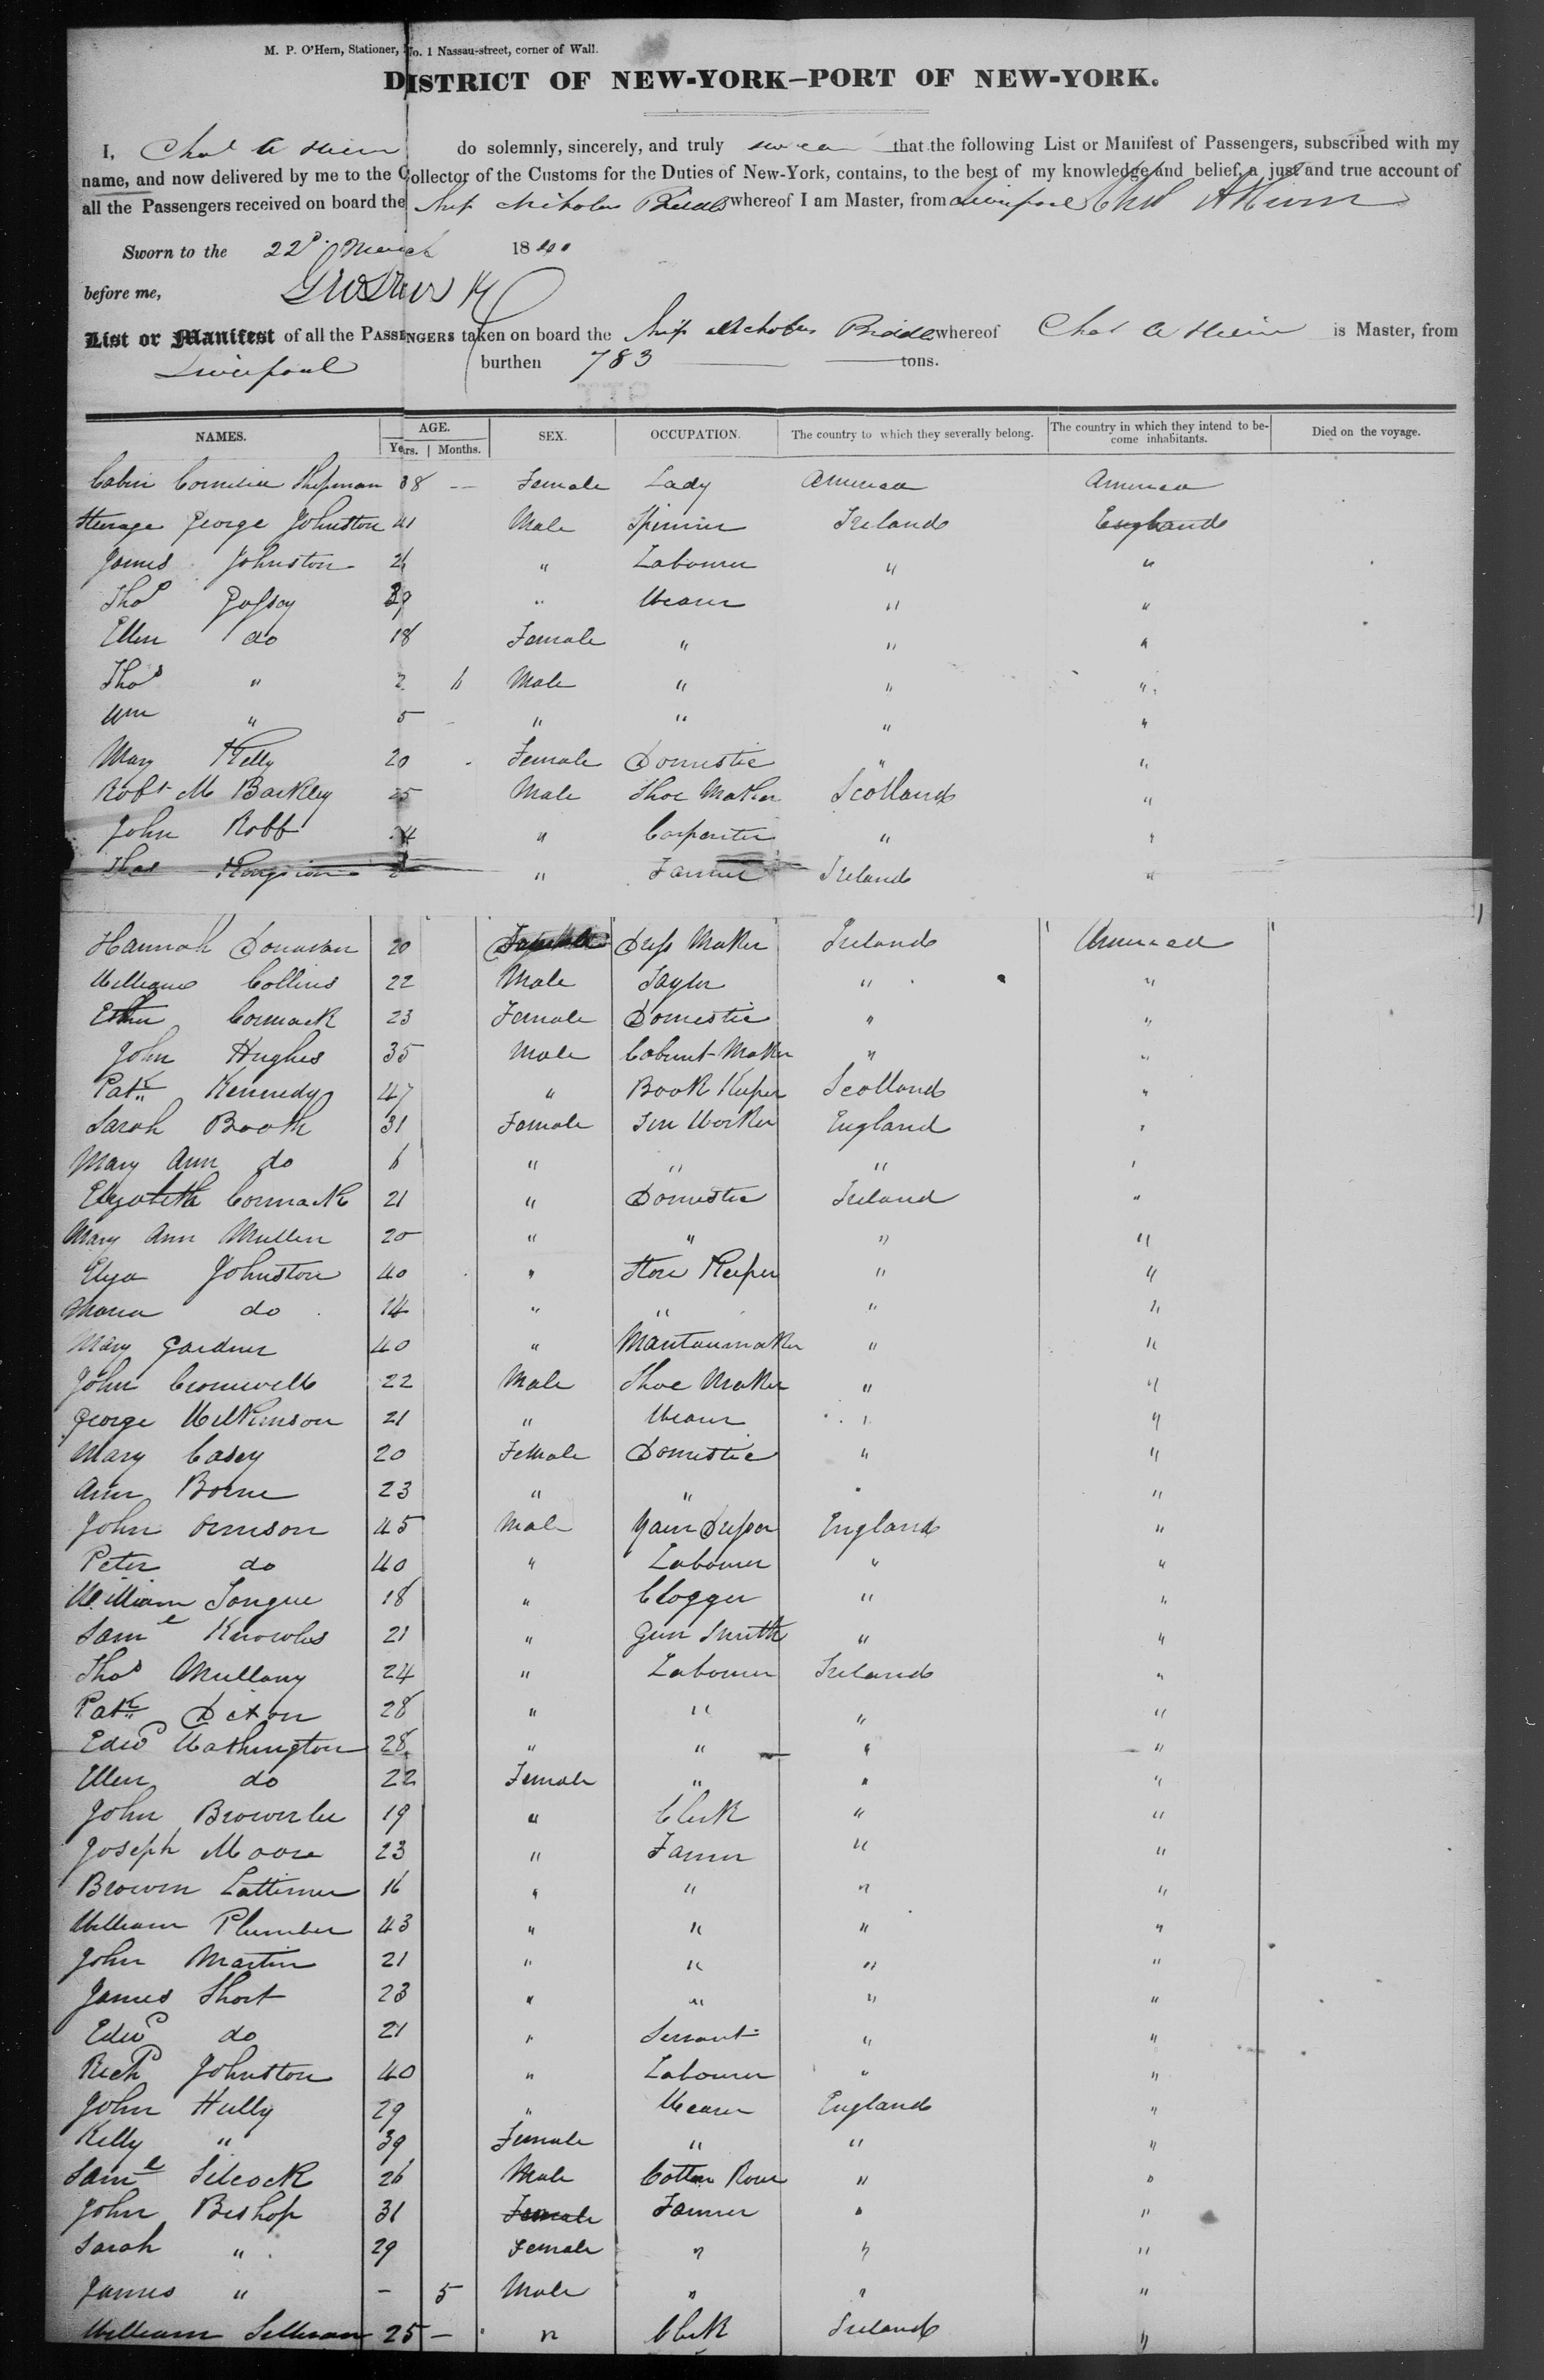 M. P. O'Hern, Stationer, No. 1 Nassau-street, corner of Wall.
DISTRICT OF NEW-YORK—PORT OF NEW-YORK.
I, Chas A do solemnly, sincerely, and truly swear that the following List or Manifest of Passengers, subscribed with my
name, and now delivered by me to the Collector of the Customs for the Duties of New-York, contains, to the best of my knowledge and belief, a just and true account of
all the Passengers received on board the Ship Nicholas Biddle whereof I am Master, from Liverpool Chas A
Sworn to the 22d March 1840
before me,
List or Manifest of all the PASSENGERS taken on board the Ship Nicholas Biddle whereof Chas A is Master, from
Liverpool burthen 783 tons.
NAMES. AGE. Years. Months. SEX. OCCUPATION. The country to which they severally belong. The country in which they intend to become inhabitants. Died on the voyage.
Cabin Cornelia Shipman 38 — Female Lady America America
Steerage George Johnston 41 Male Spinner Ireland England
James Johnston " Labourer " "
Thos " Weaver " "
Ellen do 18 Female " " "
Thos " 2 6 Male " " "
Wm " 5 " " " "
Mary Kelly 20 Female Domestic " "
Robt M Barkley 25 Male Shoe Maker Scotland "
John Robb 24 " Carpenter " "
Thos " Farmer Ireland "
Hannah Donavan 20 Female Dress Maker Ireland America
William Collins 22 Male Taylor " "
Esther Cormack 23 Female Domestic " "
John Hughes 35 Male Cabinet Maker " "
Patk Kennedy 47 " Book Keeper Scotland "
Sarah Booth 31 Female Tin Worker England "
Mary Ann do 6 " " " "
Elizabeth Cormack 21 " Domestic Ireland "
Mary Ann Mullen 20 " " " "
Eliza Johnston 40 " Store Keeper " "
Maria do 14 " " " "
Mary Gardner 40 " Mantaumaker " "
John Cromwell 22 Male Shoe Maker " "
George Wilkinson 21 " Weaver " "
Mary Casey 20 Female Domestic " "
Ann Borne 23 " " " "
John Ormson 45 Male Yarn Dresser England "
Peter do 40 " Labourer " "
William Tongue 18 " Clogger " "
Saml Knowles 21 " Gun Smith " "
Thos Mullany 24 " Labourer Ireland "
Patk Dixon 28 " " " "
Edwd Washington 28 " " " "
Ellen do 22 Female " " "
John Brownlee 19 " Clerk " "
Joseph Moore 23 " Farmer " "
Brown Lattimer 16 " " " "
William Plumber 43 " " " "
John Martin 21 " " " "
James Short 23 " " " "
Edwd do 21 " Servant " "
Richd Johnston 40 " Labourer " "
John Hully 29 " Weaver England "
Kelly " 39 Female " " "
Saml Silcock 26 Male Cotton " "
John Bishop 31 Female Farmer " "
Sarah " 29 Female " " "
James " - 5 Male " " "
William Sullivan 25 — " Clerk Ireland "